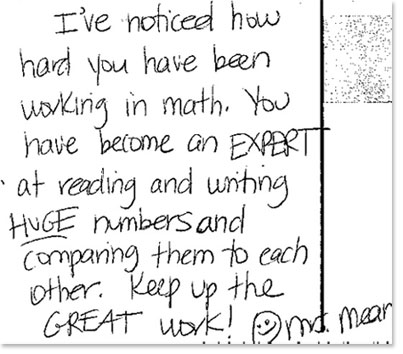 I've noticed how
hard you have been
working in math. You
have become an EXPERT
at reading and writing
HUGE numbers and
comparing them to each
other. Keep up the
GREAT work! ☺ Mrs. Mear